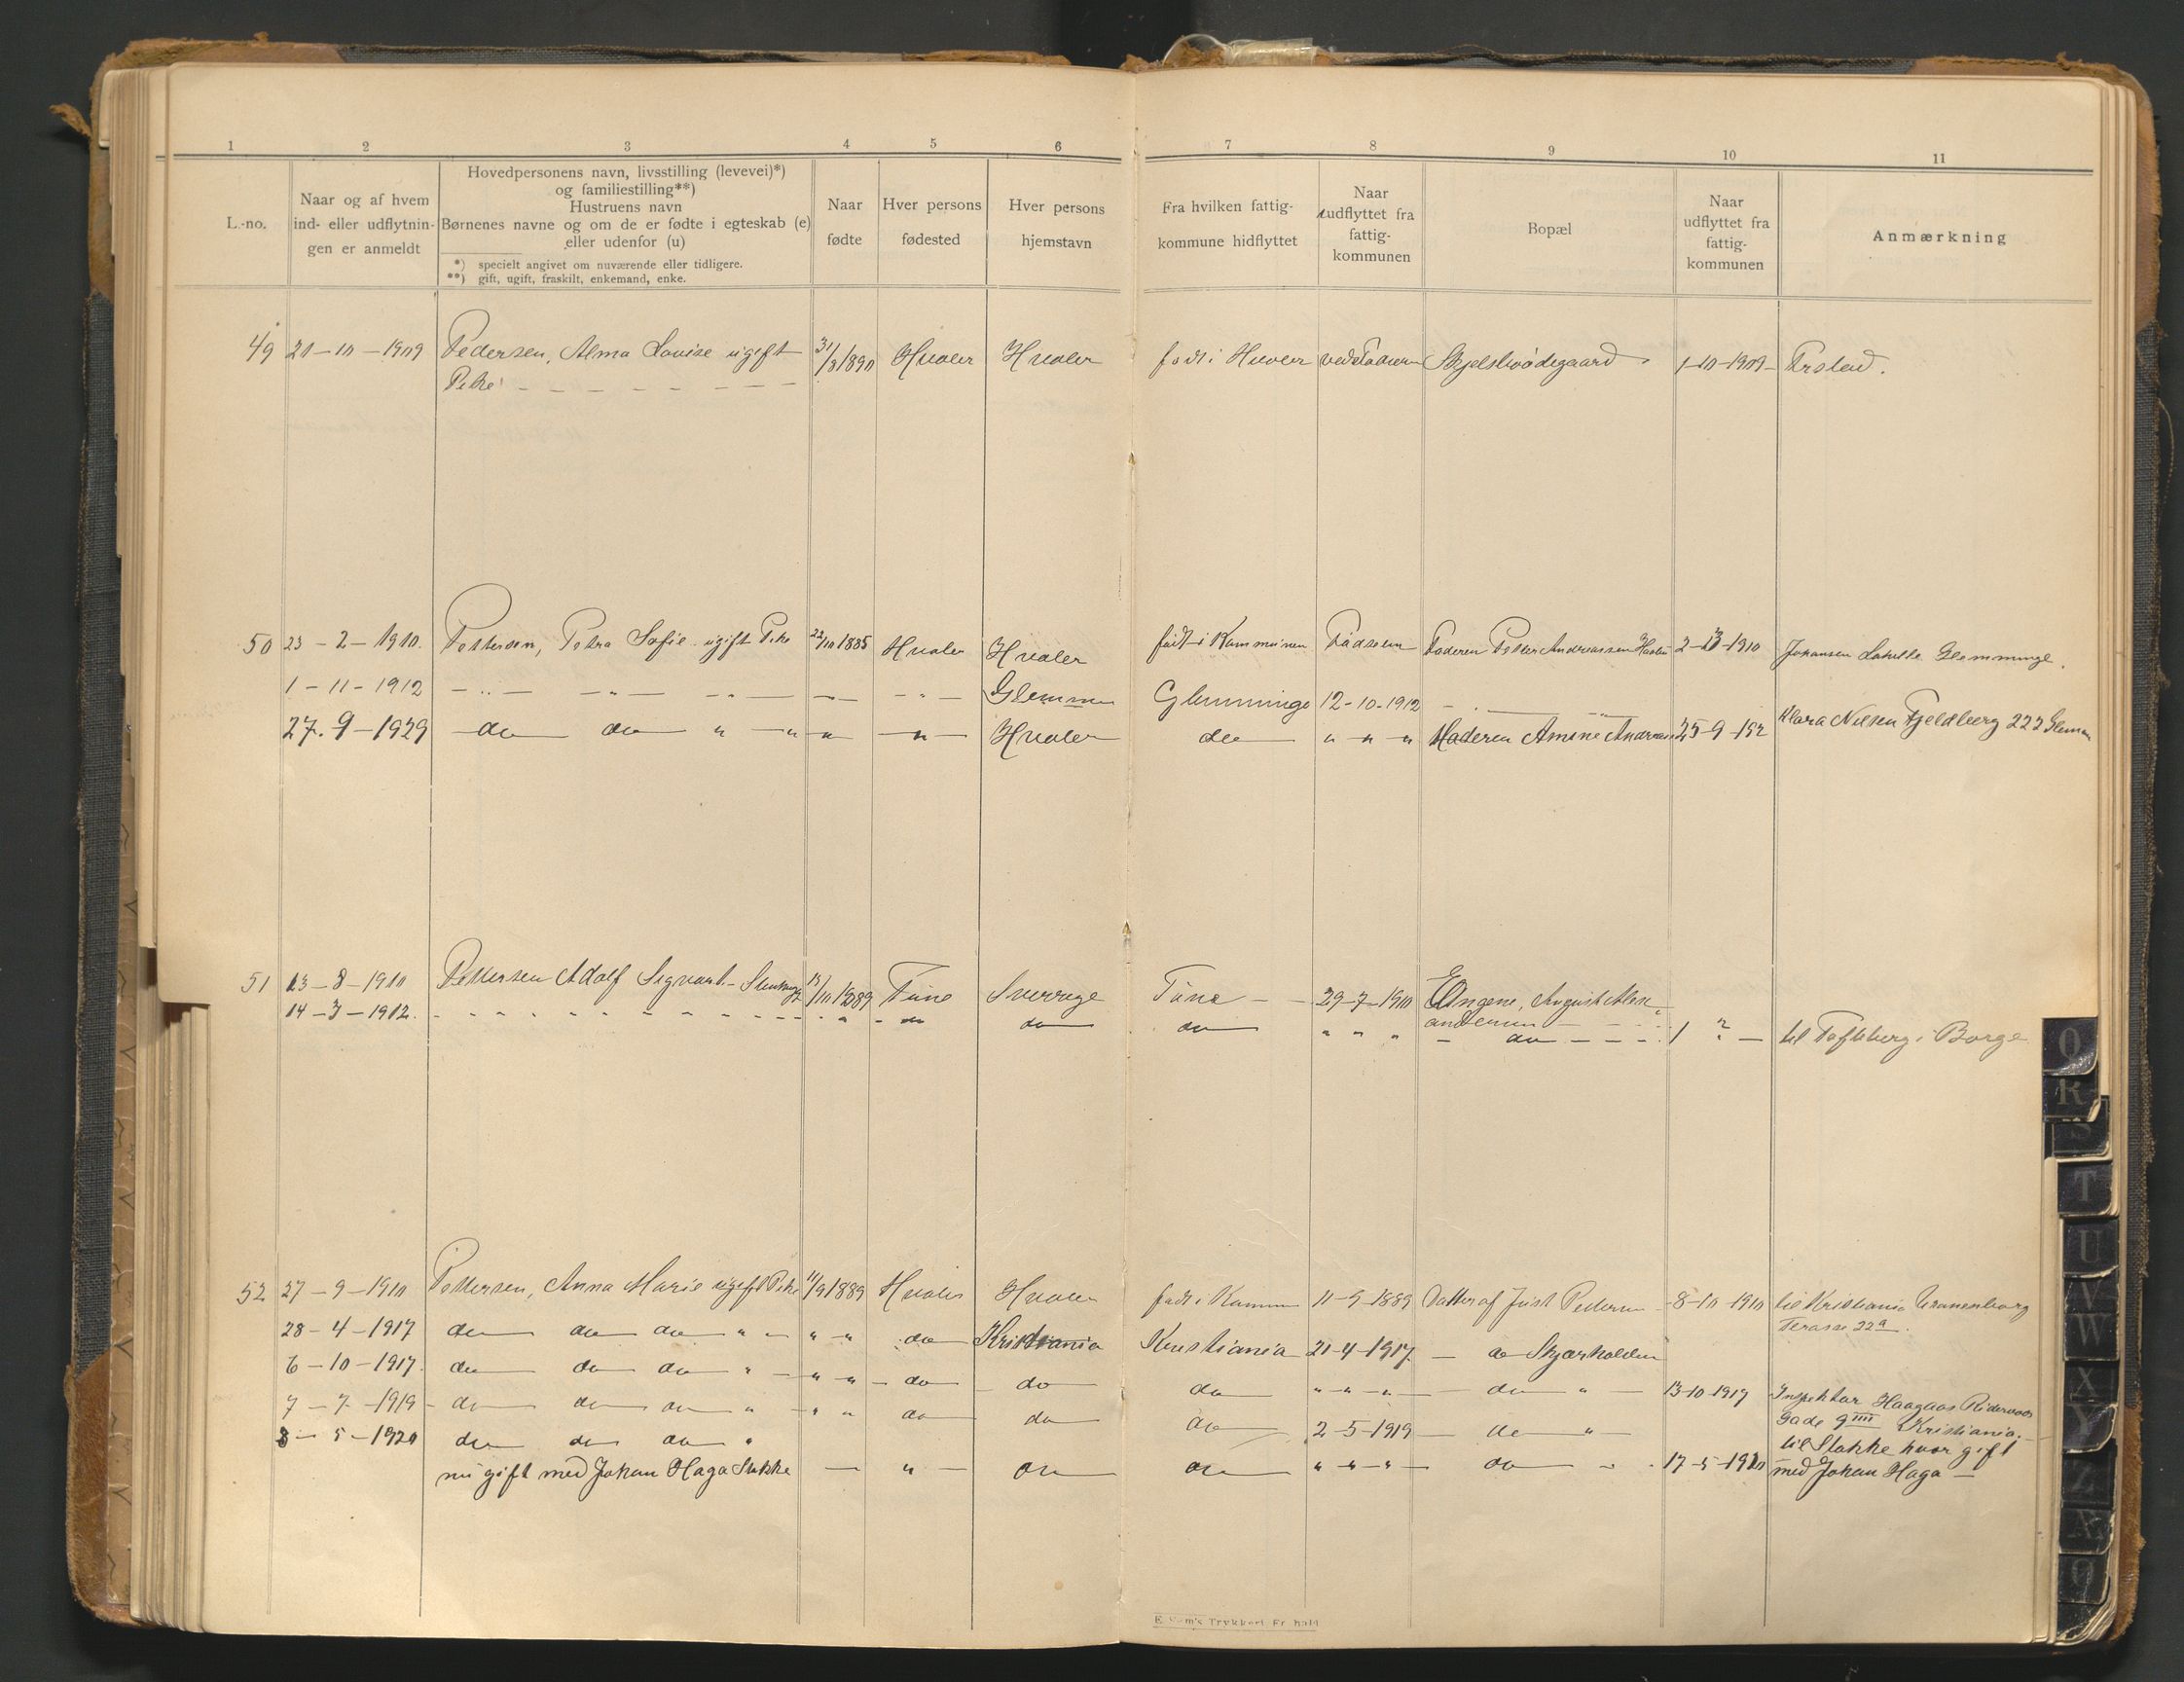 1 2 3 4 5 6 7 8 9 10 11
L.-no.
Naar og af hvem
ind- eller udflytnin-
gen er anmeldt
Hovedpersonens navn, livsstilling (levevei)*)
og familiestilling**)
Hustruens navn
Børnenes navne og om de er fødte i egteskab (e)
eller udenfor (u)
*) specielt angivet om nuværende eller tidligere.
**) gift, ugift, fraskilt, enkemand, enke.
Naar
fødte
Hver persons
fødested
Hver persons
hjemstavn
Fra hvilken fattig-
kommune hidflyttet
Naar
udflyttet fra
fattig-
kommunen
Bopæl
Naar
udflyttet fra
fattig-
kommunen
Anmærkning
49 21-10-1909 Pedersen, Alma Lovise ugift 31/3 1890 Hvaler Hvaler født i Hvaler 1-10-1909
Pike
50 23-2-1910. Pettersen, Petra Sofie ugift Pike 22/10 1885 Hvaler Hvaler født i Kommunen Fødselen Faderen Petter Andreassen 1910 Johansen Glemminge.
1-11-1912 Glemmen Glemminge 12-10-1912
27.9-1929 do do " " " " Hvaler do " " " Moderen Amine 25-9-192 Klara Nilsen Fjeldberg 222 Glemmen
51 13-8-1910 Pettersen Adolf Sigvart 1889 Tune Sverrige Tune 29-7-1910 Engene, August
14-3-1912. do do do " " " do 1 " til i Borge
52 27-9-1910 Pettersen, Anna Marie ugift Pike 11/9 1889 Hvaler Hvaler født i Kommun 11-9-1889 Datter af Just Pedersen 8-10-1910 til Kristiania Uranienborg
Terasse 22a.
28-4-1917 do do do " " " do Kristiania Kristiania 21-4-1917 do Skjærhalden
6-10-1917. do do do " " " do do do " " " do " 13-10-1917 Inspektør Haagaas
7-7-1919 do do do " " " do do do 2-5-1919 do " Gade 9 IIII Kristiania.
8-5-1920 do do do " til Stokke hvor gift
nu gift med Johan Haga Stokke " do do " " " do " 17-5-1920 med Johan Haga
E. Trykkeri Fr.hald
Q
R
S
T
U
V
W
X
Y
Z
Æ
Ø